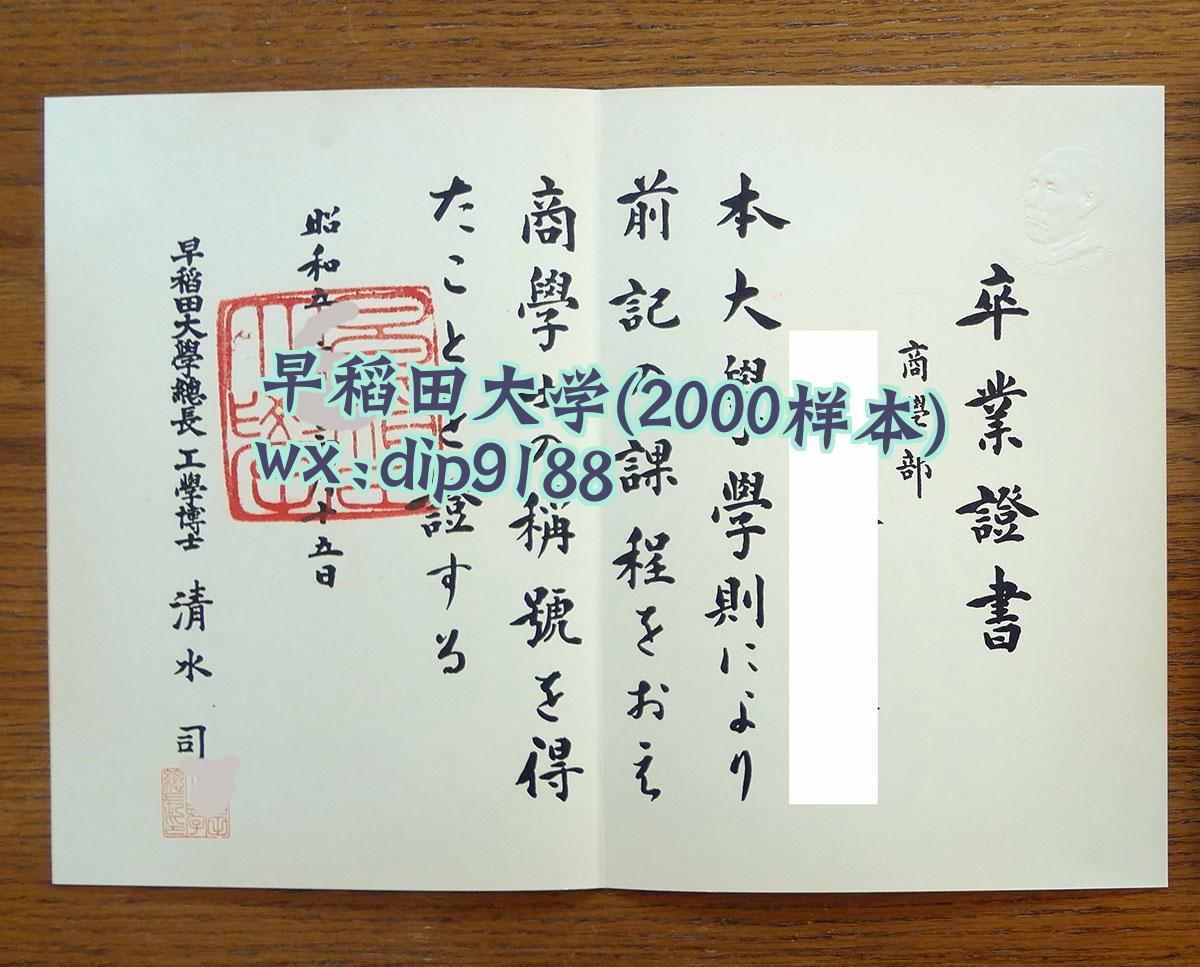 卒業證書
商學部
本大學學則により
前記の課程をおえ
商學士の稱號を得
たことを證する
昭和五 十五日
早稻田大學總長 工學博士 清水 司
早稻田大学(2000样本)
wx:dip9188